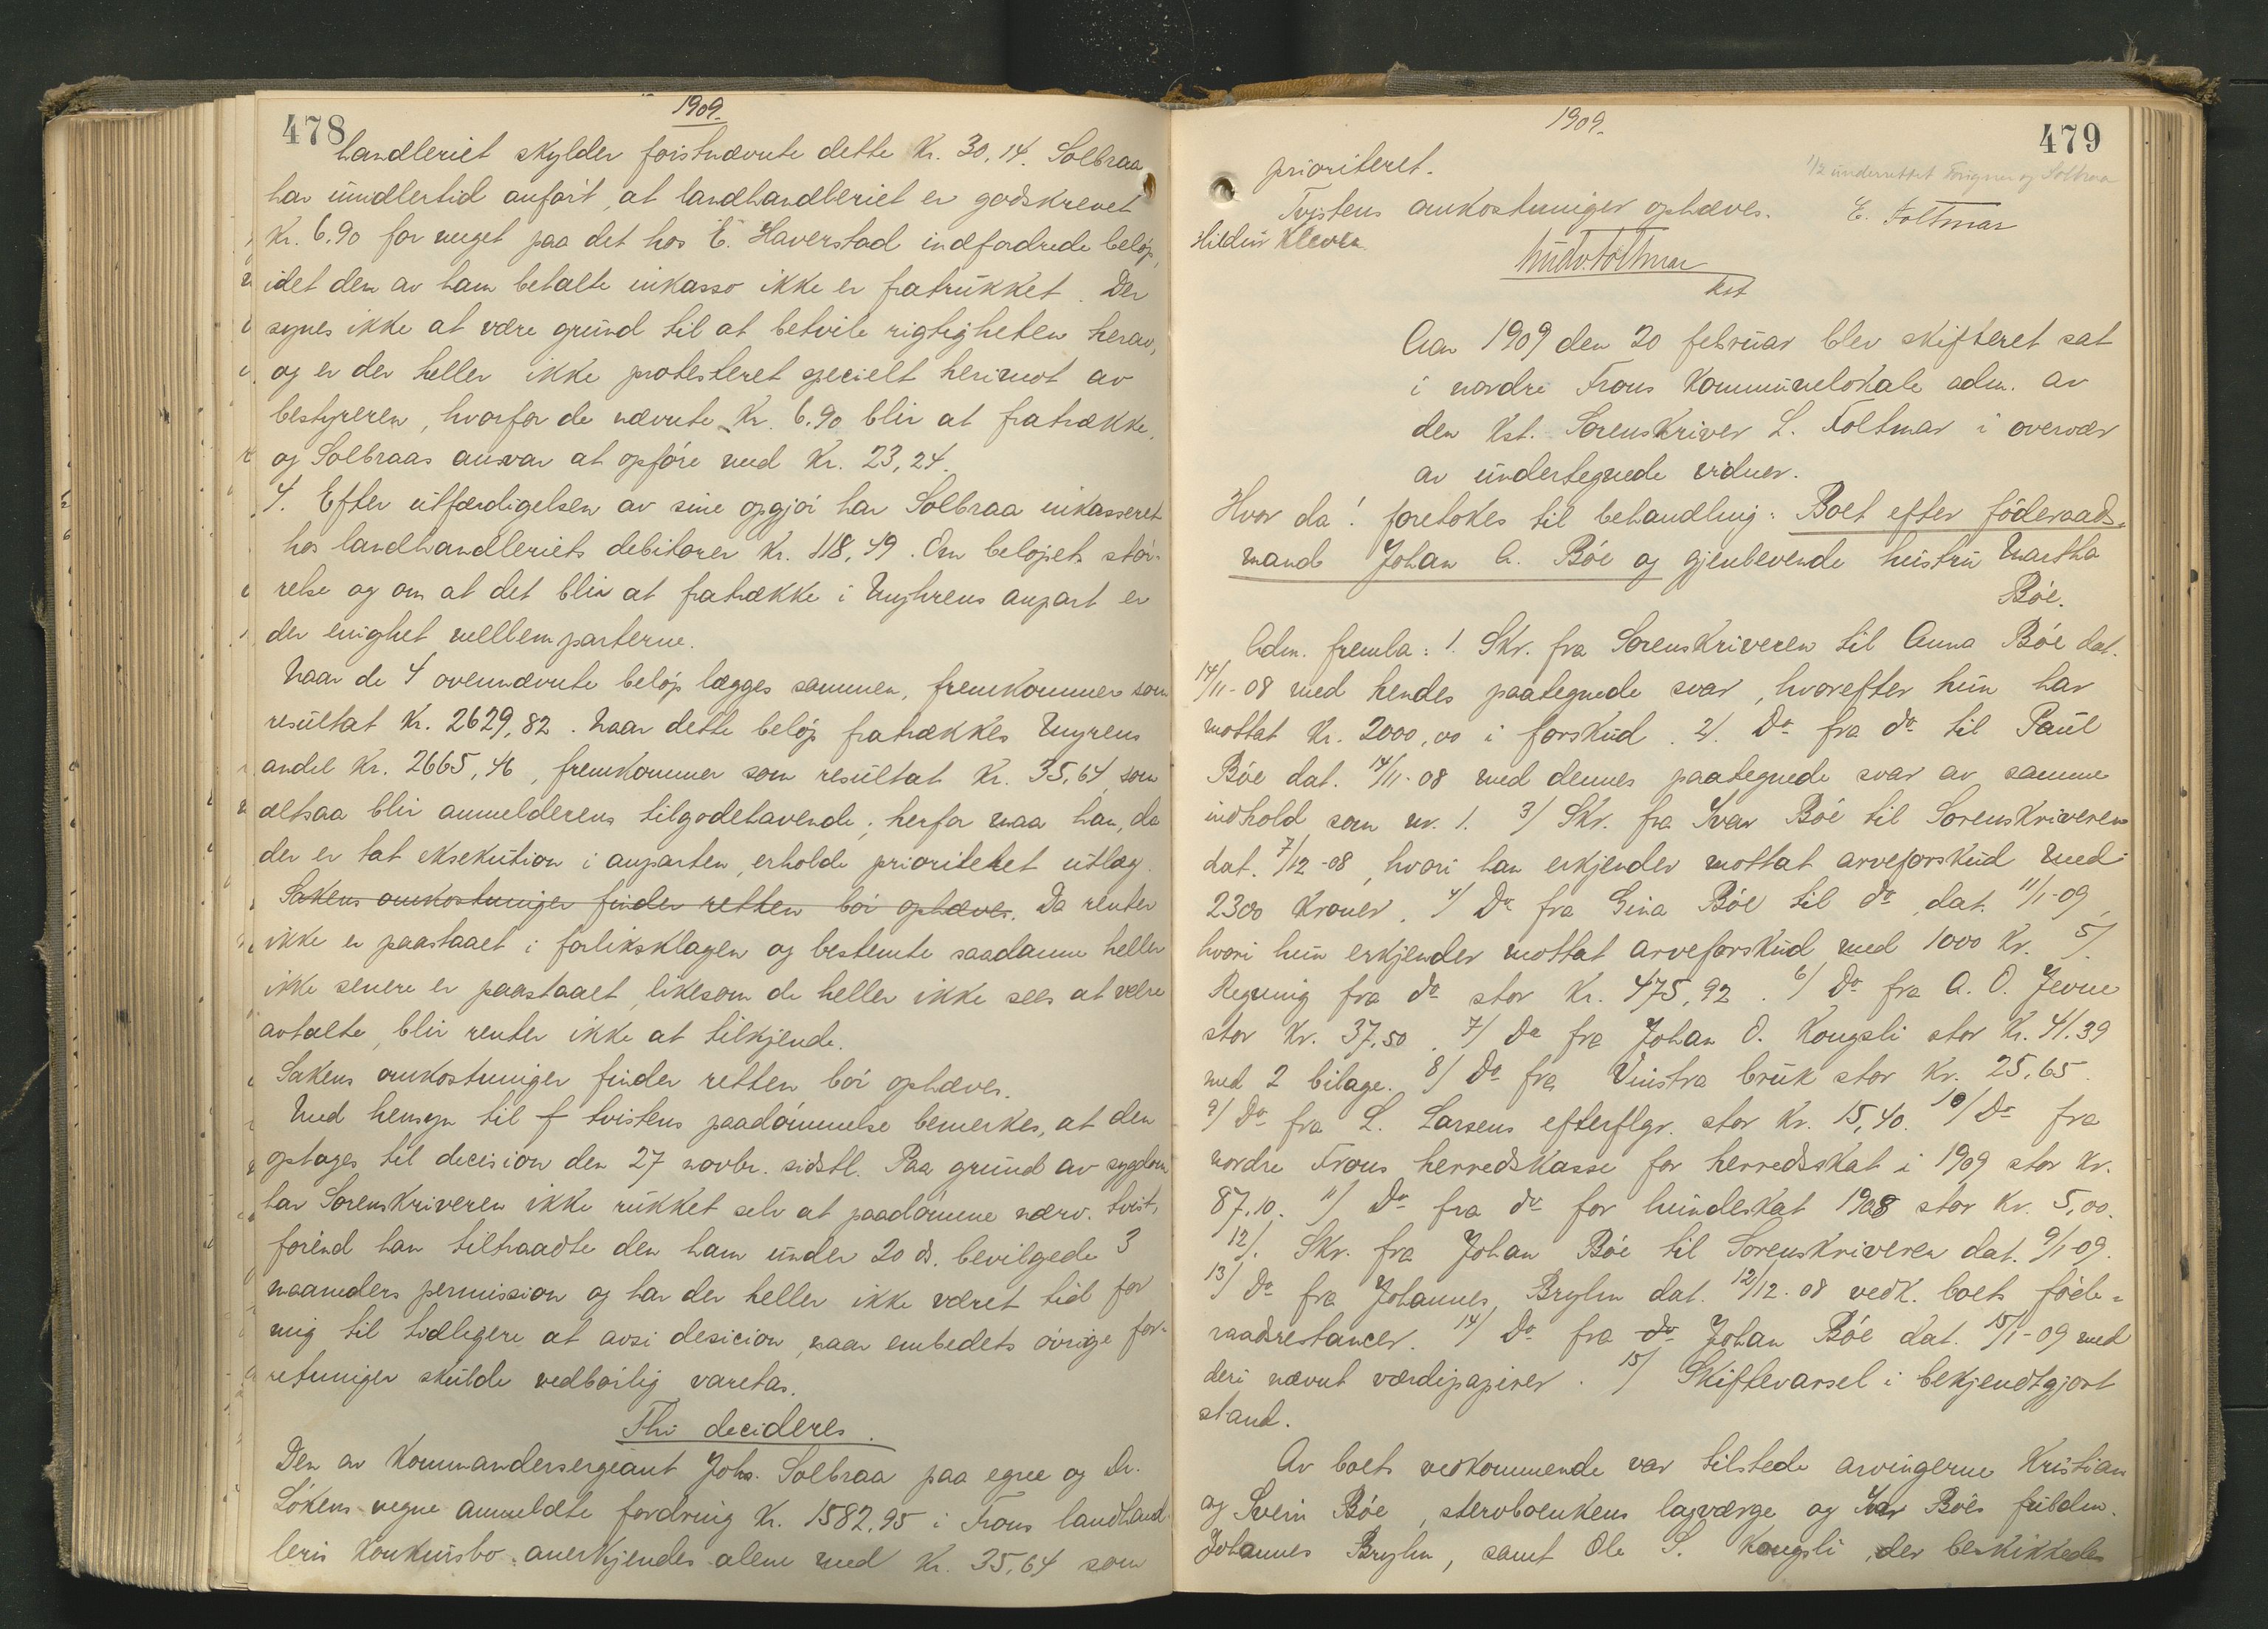 478
1909.
handleriet skylder forstnævnte dette Kr. 30,14. Solbraa
har imidlertid anført, at landhandleriet er godskrevet
Kr. 6.90 for meget paa det hos E. Haverstad indfordrede beløp,
idet den av ham betalte inkasso ikke er fratrukket. Der
synes ikke at være grund til at betvile rigtigheten herav,
og er der heller ikke protesteret specielt herimot av
bestyreren, hvorfor de nævnte Kr. 6.90 blir at fratrække,
og Solbraas ansvar at opføre med Kr. 23,24.
4. Efter utfærdigelsen av sine opgjør har Solbraa inkasseret
hos landhandleriets debitorer Kr. 118,49. Om beløpets stør-
relse og om at det blir at fratrække i Myhrens anpart er
der enighet mellem parterne.
Naar de 4 ovennævnte beløp lægges sammen, fremkommer som
resultat Kr. 2629,82. Naar dette beløp fratrækkes Myrens
andel Kr. 2665,46, fremkommer som resultat Kr. 35,64, som
altsaa blir anmelderens tilgodehavende; herfor maa han, da
der er tat eksekution i anparten, erholde prioritetet utlæg.
Sakens omkostninger finder retten bør ophæves. Da renter
ikke er paastaaet i forliksklagen og bestemte saadanne heller
ikke senere er paastaaet, likesom de heller ikke sees at være
avtalte, blir renter ikke at tilkjende.
Sakens omkostninger finder retten bør ophæves.
Med hensyn til f tvistens paadømmelse bemerkes, at den
optages til decision den 27 novbr. sidstl. Paa grund av sygdom
har Sorenskriveren ikke rukket selv at paadømme nærv. tvist,
førend han tiltraadte den ham under 20 ds. bevilgede 3
maaneders permission og har der heller ikke været tid for
mig til tidligere at avsi desicion, naar embedets øvrige for-
retninger skulde vedbørlig varetas.
Thi decideres.
Den av Kommandersergeant Johs. Solbraa paa egne og Dr.
Løkens vegne anmeldte fordring Kr. 1582,95 i Frons landhand-
leris Konkursbo anerkjendes alene med Kr. 35,64 som
1909.
479
prioriteret.
1/2 underrettet og Solbraa
Tvistens omkostninger ophæves.
E. Foltmar
Hildur Kleven
Foltmar
Kst
Aar 1909 den 20 februar blev skifteret sat
i nordre Frons Kommunelokale adm. av
den Kst. Sorenskriver L. Foltmar i overvær
av undertegnede vidner.
Hvor da! foretokes til behandling: Boet efter føderaads-
mand Johan A. Bøe og gjenlevende hustru Martha
Bøe.
Adm. fremla: 1. Skr. fra Sorenskriveren til Anna Bøe dat.
14/11-08 med hendes paategnede svar, hvorefter hun har
mottat Kr. 2000,00 i forskud. 2/. Do fra do til Paul
Bøe dat. 14/11-08 med dennes paategnede svar av samme
indhold som nr. 1. 3/ Skr. fra Ivar Bøe til Sorenskriveren
dat. 7/12-08, hvori han erkjender mottat arveforskud med
2300 Kroner. 4/ Do fra Gina Bøe til do, dat. 11/1-09,
hvori hun erkjender mottat arveforskud med 1000 Kr. 5/.
Regning fra do stor Kr. 475,92. 6/ Do fra A. O. Jevne
stor Kr. 37,50. 7/ Do fra Johan O. Kongsli stor Kr. 41.39
med 2 bilage. 8/ Do fra Vinstra bruk stor Kr. 25,65.
9/ Do fra L. Larsens efterflgr. stor Kr. 15,40. 10/ Do fra
nordre Frons herredskasse for herredsskat i 1909 stor Kr.
87,10. 11/ Do fra do for hundeskat 1908 stor Kr. 5,00.
12/. Skr. fra Johan Bøe til Sorenskriveren dat. 9/1-09.
13/ Do fra Johannes Brylm dat. 12/12.08 vedk. boets føde-
raadsrestancer. 14/ Do fra do Johan Bøe dat. 15/1-09 med
deri nævnt værdipapirer. 15/ Skiftevarsel i bekjendtgjort
stand.
Av boets vedkommende var tilstede arvingerne Kristian
og Svein Bøe, stervboenkens lagværge og Ivar Bøes fuldm.
Johannes Brylm, samt Ole S. Kongsli, der beskikkedes